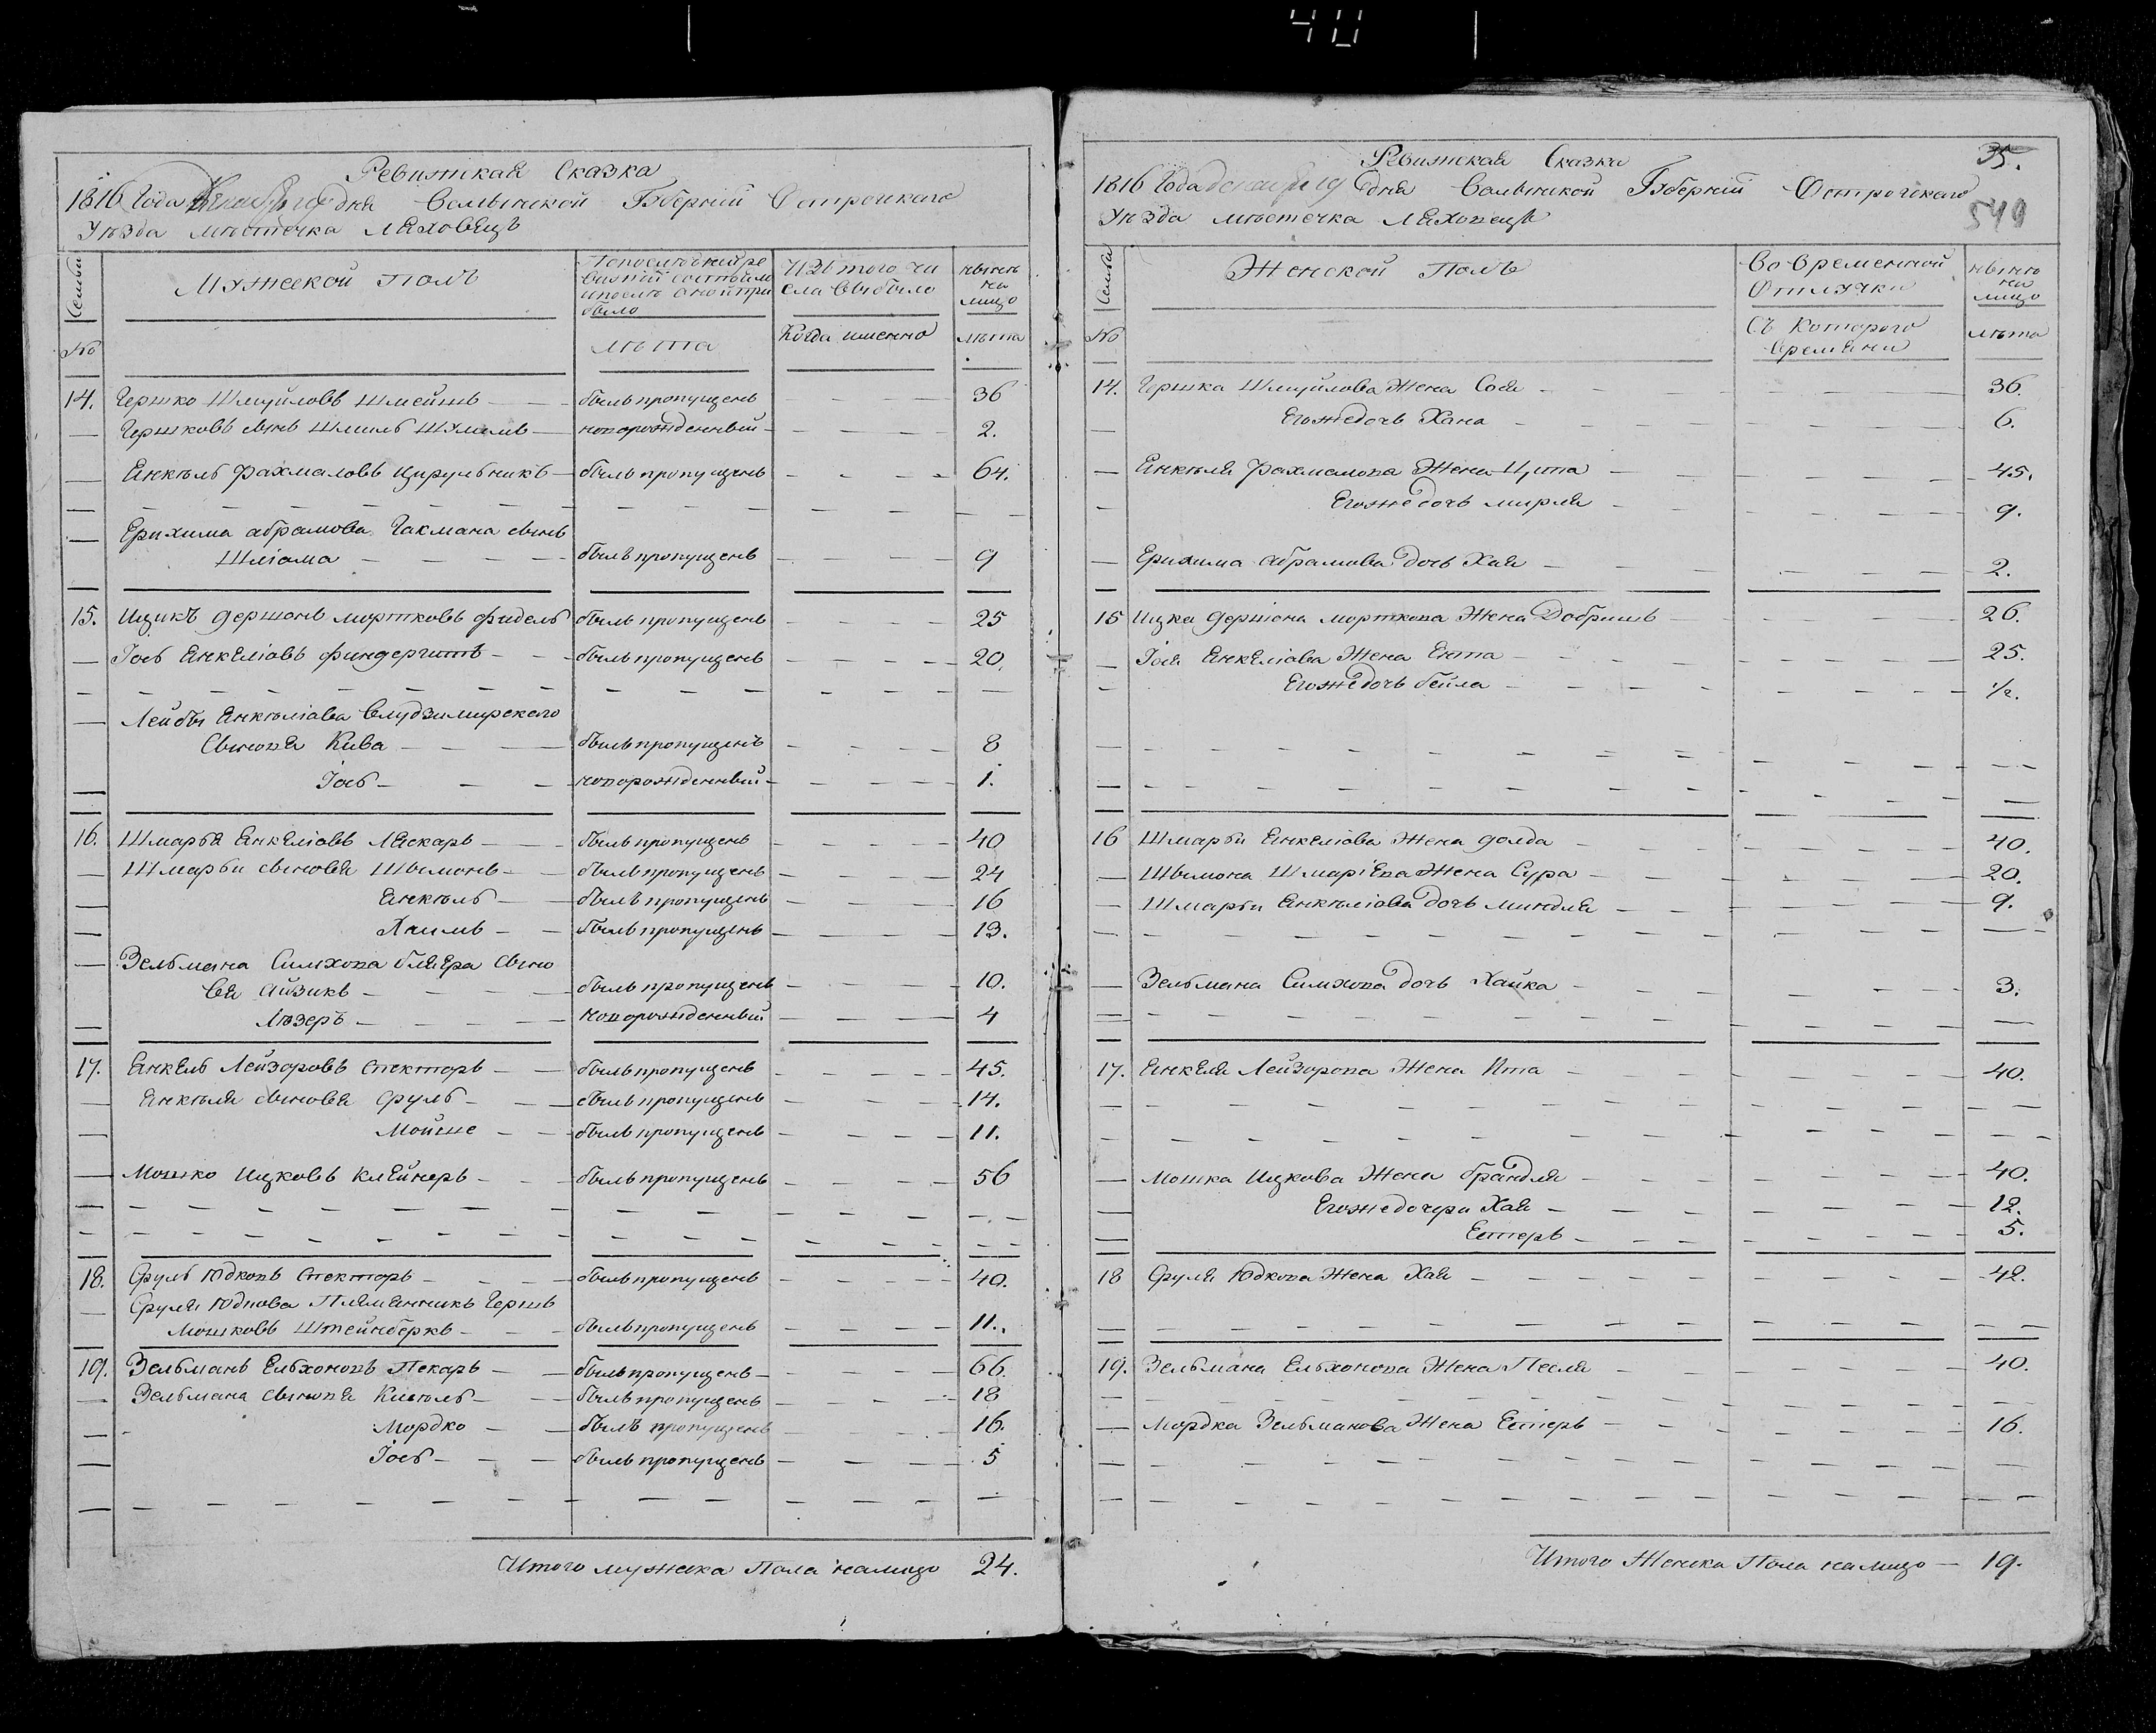 40
Ревижская Сказка
1816 Года дня Волынской Гȣберніи Острогскаго
Уѣзда мѣстечка Ляховецъ
Семьи
Мужеской полъ
По последней ре
визіи состояло
и после оной при
было
Изъ того чи
сла выбыло
нынѣ
на
лицо
№
лѣта
Когда именно
лѣта
14. Гершко Шмуйловъ Шмейшъ — былъ пропущенъ — 36
Гершковъ сынъ Шлиомъ — новорожденный — 2.
Янкѣль Рахмаловъ Цирульникъ — былъ пропущенъ — 64.
Ерихима Абрамова Гакмана сынъ
Шліома — былъ пропущенъ — 9
15. Ицикъ Гершонъ Мортковъ Фидель былъ пропущенъ — 25
Іосъ Янкеліовъ Фингергутъ — былъ пропущенъ — 20.
Лейбы Янкѣліова Влудзимирскаго
Сыновя Кива — былъ пропущенъ — 8
Іосъ — новорожденный — 1.
16. Шмарья Янкеліовъ Лекарь — былъ пропущенъ — 40
Шмарьи сыновя Шымонъ — былъ пропущенъ — 24
Янкѣль — былъ пропущенъ — 16
Хаимъ — былъ пропущенъ — 13.
Зельмана Симхова Бляера сыно
вя Айзикъ — былъ пропущенъ — 10.
Лѣзеръ — новорожденный — 4
17. Янкель Лейзоровъ Спекторъ — былъ пропущенъ — 45.
Янкѣля сыновя Сруль — былъ пропущенъ — 14.
Мойше — былъ пропущенъ — 11.
Мошко Ицковъ Клейнеръ — былъ пропущенъ — 56
18. Сруль Юдковъ Спекторъ — былъ пропущенъ — 40.
Сруля Юдкова Племянникъ Гершъ
Мошковъ Штейнберкъ — былъ пропущенъ — 11.
19. Зельманъ Ельхоновъ Пекарь — былъ пропущенъ — 66.
Зельмана сыновя Кисѣль — былъ пропущенъ — 18
Мордко — былъ пропущенъ — 16.
Іосъ — былъ пропущенъ — 5
Итого мужеска Пола налицо 24.
Ревижская Сказка 35.
1816 Года дня Волынской Гȣберніи Острогскаго
549
Уѣзда мѣстечка Ляховецъ
Семьи
Женской Полъ
Во Временной
Отлучки
нынѣ
на
лицо
№
Съ Которого
Времяни
лѣта
14. Гершка Шмуйлова Жена Сося — 36.
Егожедочь Хана — 6.
Янкѣля Рахмалова Жена Ципа — 45.
Егоже дочь Мирля — 9.
Ерихима Абрамова дочь Хая — 2.
15 Ицка Гершона Морткова Жена Добришъ — 26.
Іося Янкеліова Жена Ента — 25.
Егожедочь Бейла — 1/2.
16 Шмарьи Янкеліова Жена Голда — 40.
Шымона Шмаріева Жена Сура — 20.
Шмарьи Янкѣліова дочь Миндля — 9.
Зельмана Симхова дочь Хайка — 3.
17. Янкеля Лейзорова Жена Ита — 40.
Мошка Ицкова Жена Брандля — 40.
Егоже дочери Хая — 12.
Естеръ — 5.
18 Сруля Юдкова Жена Хая — 42.
19. Зельмана Ельхонова Жена Песля — 40.
Мордка Зельманова Жена Естеръ — 16.
Итого Женска Пола налицо — 19.